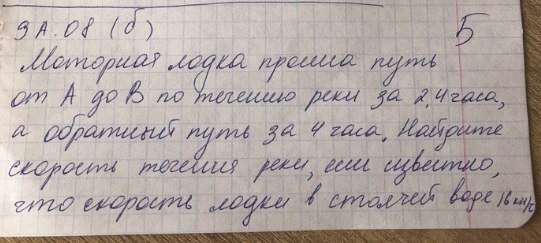 ЗА.08 (б) 5
Моторная лодка прошла путь
от А до В по течению реки за 2,4 часа,
а обратный путь за 4 часа. Найдите
скорость течения реки, если известно,
что скорость лодки в стоячей воде 16 км/ч